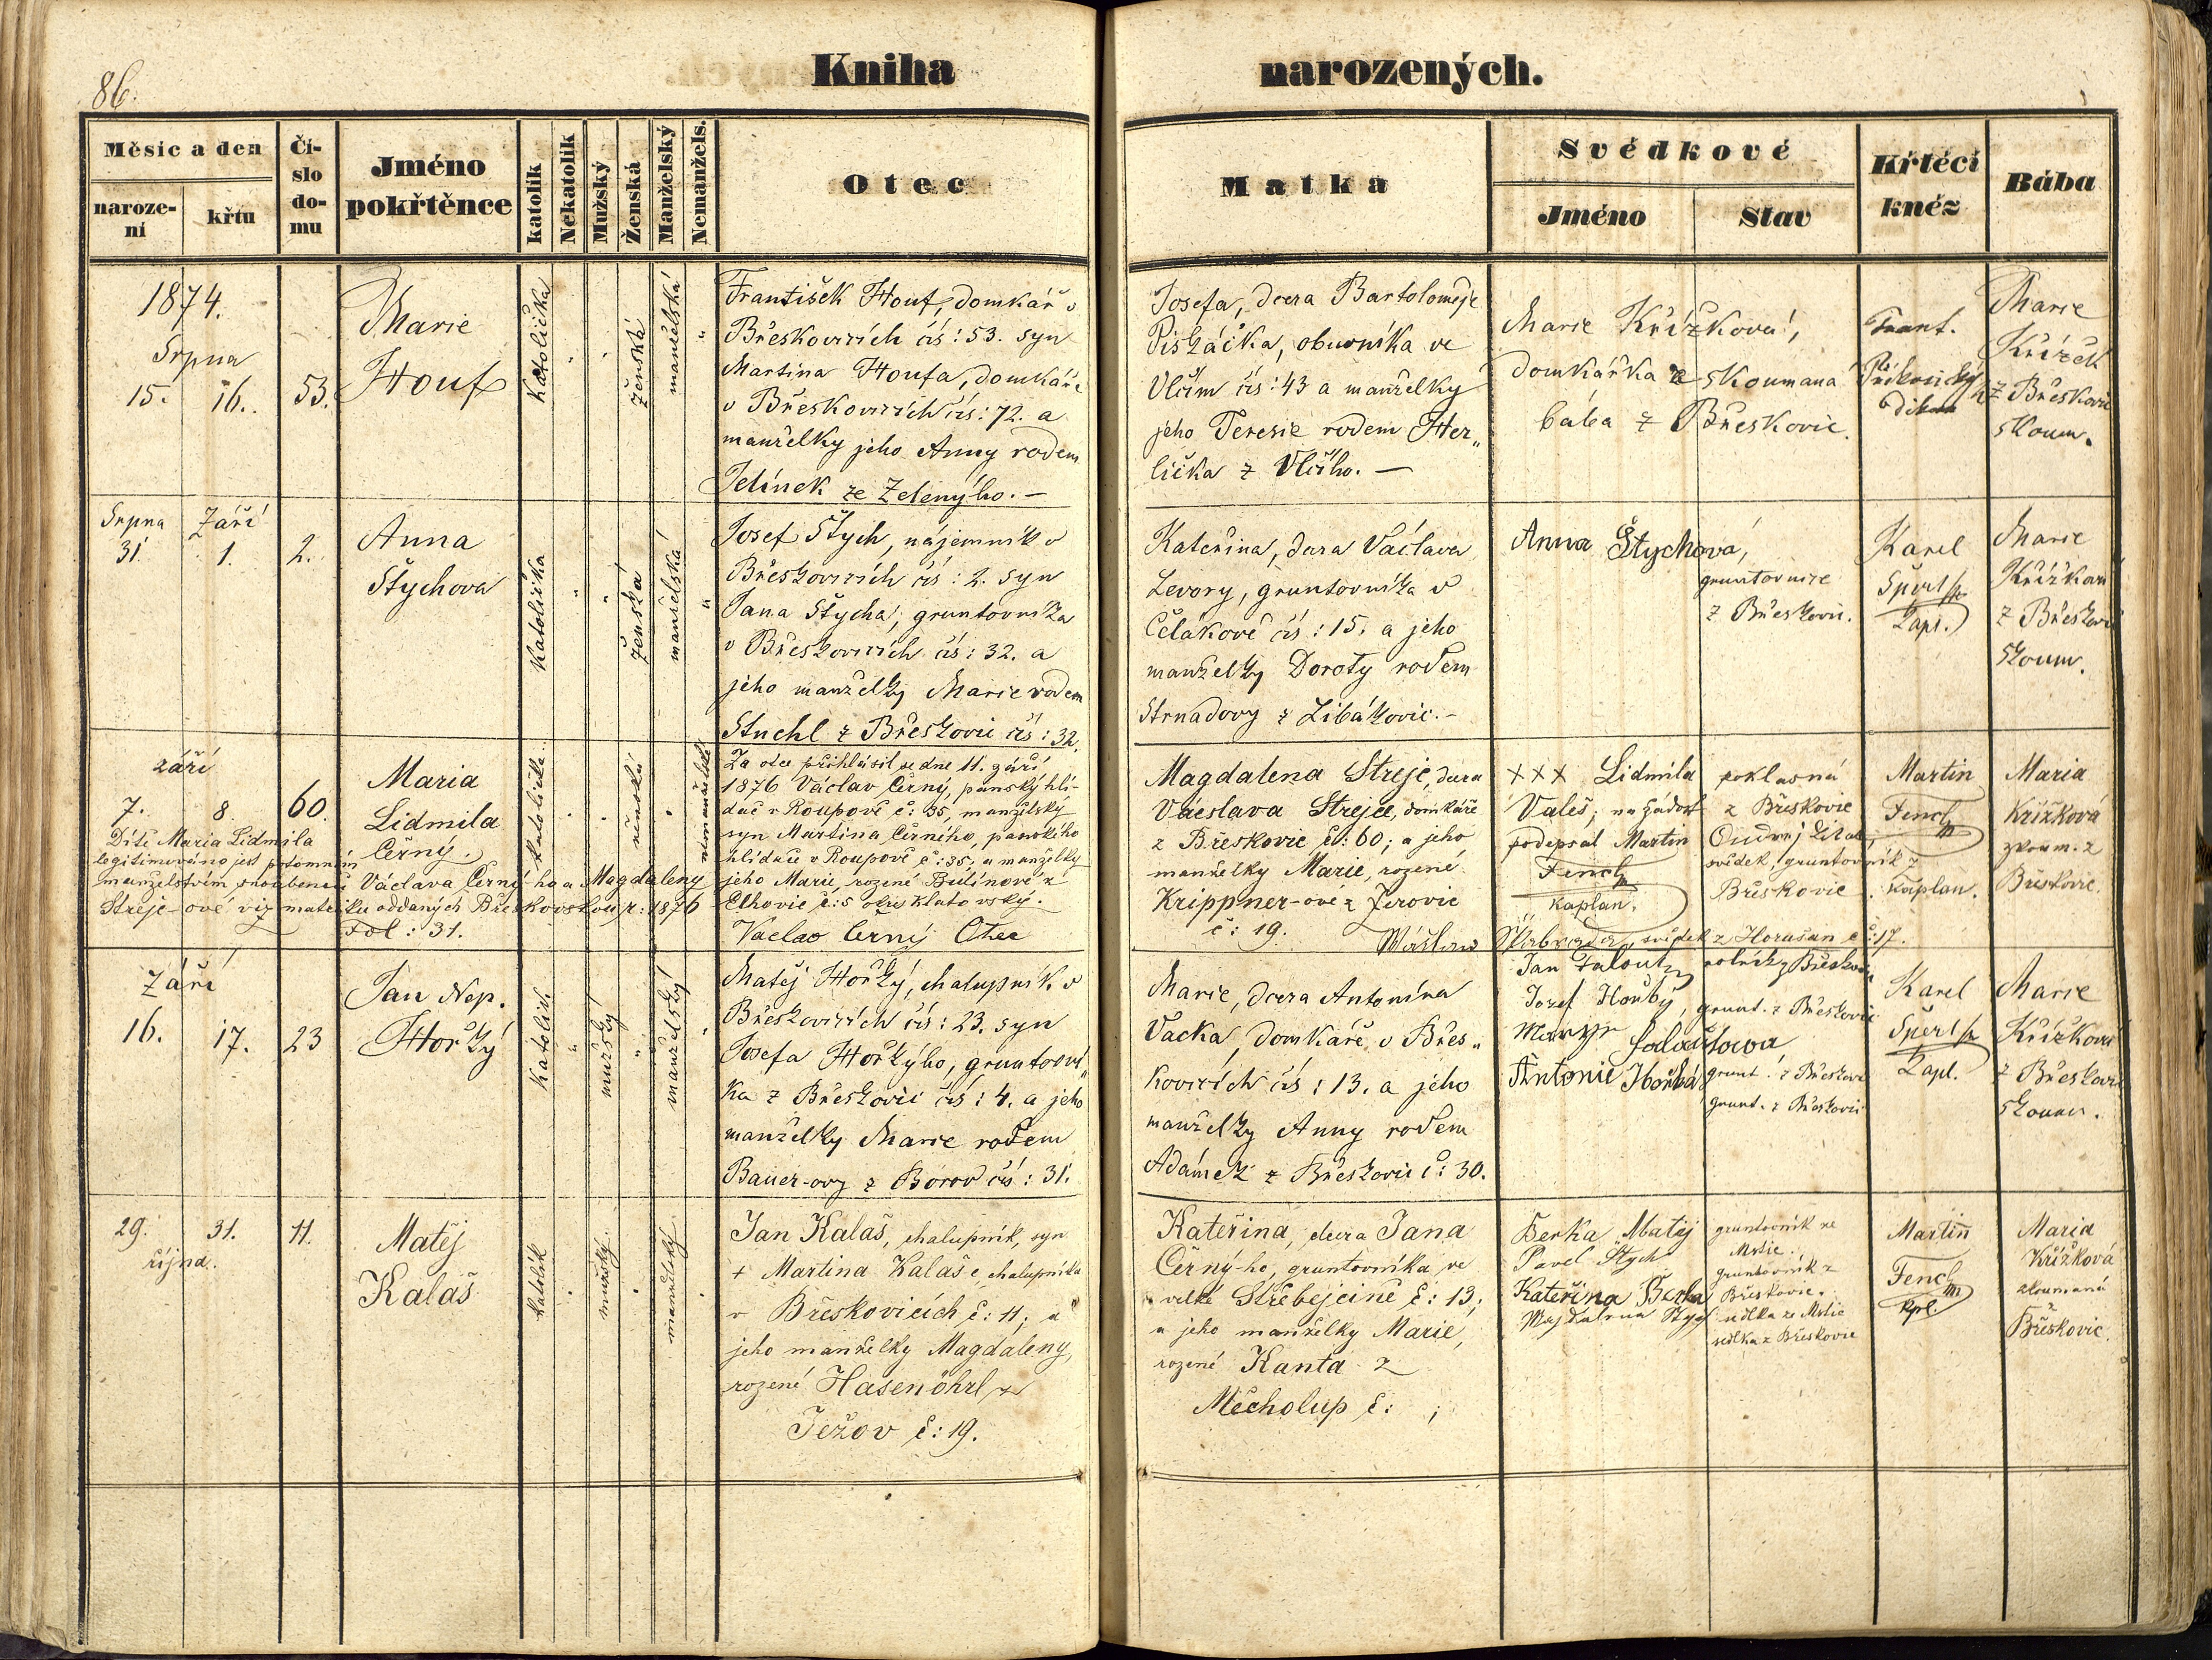 86.
Kniha narozených.
Měsíc a den
naroze-
ní
křtu
Čí-
slo
do-
mu
Jméno
pokřtěnce
katolík
Nekatolík
Mužský
Ženská
Manželský
Nemanžels.
Otec
Matka
Svědkové
Jméno
Stav
Křtěcí
kněz
Bába
1874.
Srpna
15. 16. 53.
Marie
Houf
Katolička
ženská
manželská
František Houf, domkář v
Břeskovicích čís: 53. syn
Martina Houfa, domkáře
v Břeskovicích čís: 72. a
manželky jeho Anny rodem
Jelínek ze Zelenýho. —
Josefa, dcera Bartoloměje
Piskáčka, obuvníka ve
Vlčím čís: 43 a manželky
jeho Teresie rodem Her„
lička z Vlčího. —
Marie Křížková,
domkářka skoumaná
bába z Břeskovic.
Frant.
Marie
Křížek
z Břeskovic
skoum.
Srpna Září
31 1. 2.
Anna
Štychova
Katolička
ženská
manželská
Josef Štych, nájemník v
Břeskovicích čís: 2. syn
Jana Štycha, gruntovníka
v Břeskovicích čís: 32. a
jeho manželky Marie rodem
Stuchl z Břeskovic čís: 32.
Kateřina, dcera Václava
Levory, gruntovníka v
Čelákově čís: 15. a jeho
manželky Doroty rodem
Strnadovy z Libákovic. -
Anna Štychová,
gruntovnice
z Břeskovic.
Karel
Šperl
Kapl.
Marie
Křížková
z Břeskovic
skoum.
září
7. 8. 60.
Maria
Lidmila
Černý.
katolička
ženská
nemanželská
Dítě Maria Lidmila
legitimováno jest potomním
manželstvím snoubenců Václava Černý-ho a Magdaleny
Streje-ové viz matriku oddaných Břeskovskou r: 1876
Fol: 31.
Za otce přihlásil se dne 11. září
1876 Václav Černý, panský hlí-
dač v Roupově č: 35, manželský
syn Martina Černého, panského
hlídače v Roupově č: 35. a manželky
jeho Marie, rozené Bulínové z
Elhovic č: 5 okres Klatovský.
Vaclav Černý Otec
Magdalena Streje, dcera
Václava Strejce, domkáře
z Břeskovic č: 60; a jeho
manželky Marie, rozené
Krippner-ové z Jerovic
č: 19.
××× Lidmila
Valeš; na žádost
podepsal Martin
Fencl
kaplan.
poklasná
z Břeskovic
svědek, gruntovník z
Břeskovic
svědek z Horušan č: 17.
Martin
Fencl
Kaplan.
Maria
Křížková
zkoum. z
Břeskovic.
Září
16. 17. 23
Jan Nep.
Hořký
Katolický
mužský
manželský
Matěj Hořký, chalupník v
Břeskovicích čís: 23. syn
Josefa Hořkýho, gruntovní„
ka z Břeskovic čís: 4. a jeho
manželky Marie rodem
Bauer-ovy z Borov čís: 31.
Marie, dcera Antonína
Vacka, domkáře v Břes„
kovicích čís: 13. a jeho
manželky Anny rodem
Adámek z Břeskovic č: 30.
Jan
rolník z Břeskovic
Josef Hořký, grunt. z Břeskovic
grunt. z Břeskovic
Antonie Hořká
grunt. z Břeskovic
Karel
Šperl
Kapl.
Marie
Křížková
z Břeskovic
skoum.
29. 31. 11.
října.
Matěj
Kalaš
katolík
mužský
manželský
Jan Kalaš, chalupník, syn
+ Martina Kalaše, chalupníka
v Břeskovicích č: 11; a
jeho manželky Magdaleny,
rozené Hasenöhrl z
Ježov č: 19.
Kateřina, dcera Jana
Černý-ho, gruntovníka ve
velké Střebejčině č: 13;
a jeho manželky Marie,
rozené Kanta z
Měcholup č: ;
Berka Matěj
Pavel Štych
Kateřina Berka
gruntovník ve
Mstic.
gruntovník z
Břeskovic.
sedlka ze Mstic
sedlka z Břeskovic
Martin
Fencl
kpl.
Maria
Křížková
zkoumaná
Břeskovic.